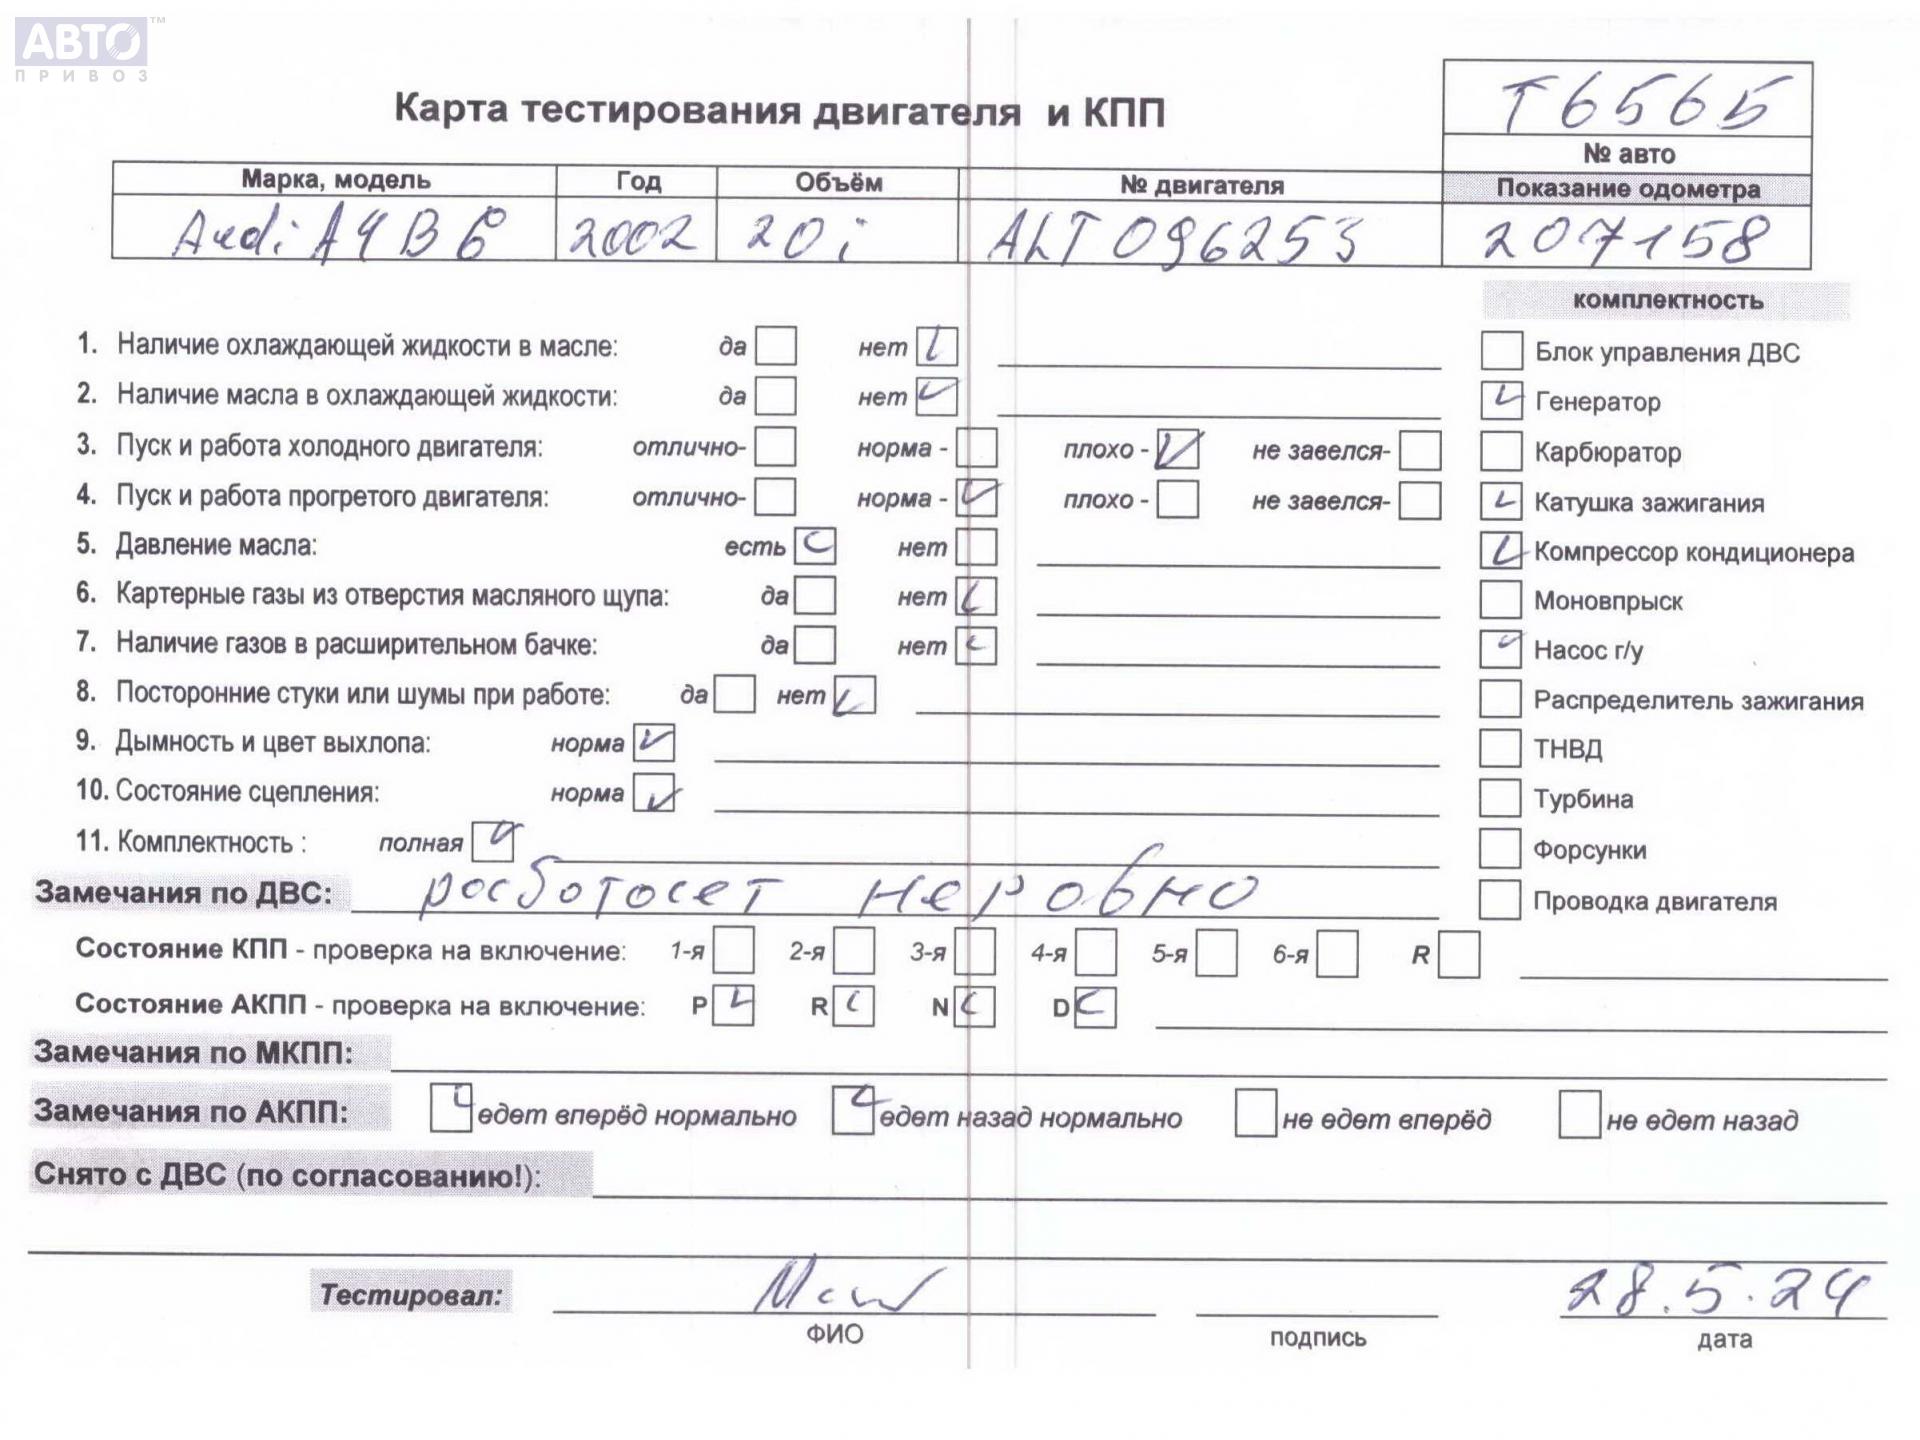 АВТО™
ПРИВОЗ
Т6565
Карта тестирования двигателя и КПП
№ авто
Марка, модель Год Объём № двигателя Показание одометра
Audi A4 B6 2002 20i ALT 096253 207158
комплектность
1. Наличие охлаждающей жидкости в масле: да нет
Блок управления ДВС
2. Наличие масла в охлаждающей жидкости: да нет
Генератор
3. Пуск и работа холодного двигателя: отлично- норма - плохо - не завелся-
Карбюратор
4. Пуск и работа прогретого двигателя: отлично- норма - плохо - не завелся-
Катушка зажигания
5. Давление масла: есть нет
Компрессор кондиционера
6. Картерные газы из отверстия масляного щупа: да нет
Моновпрыск
7. Наличие газов в расширительном бачке: да нет
Насос г/у
8. Посторонние стуки или шумы при работе: да нет
Распределитель зажигания
9. Дымность и цвет выхлопа: норма
ТНВД
10. Состояние сцепления: норма
Турбина
11. Комплектность : полная
Форсунки
Замечания по ДВС: росботосет неровно
Проводка двигателя
Состояние КПП - проверка на включение: 1-я 2-я 3-я 4-я 5-я 6-я R
Состояние АКПП - проверка на включение: P R N D
Замечания по МКПП:
Замечания по АКПП: едет вперёд нормально едет назад нормально не едет вперёд не едет назад
Снято с ДВС (по согласованию!):
Тестировал: 28.5.24
ФИО подпись дата